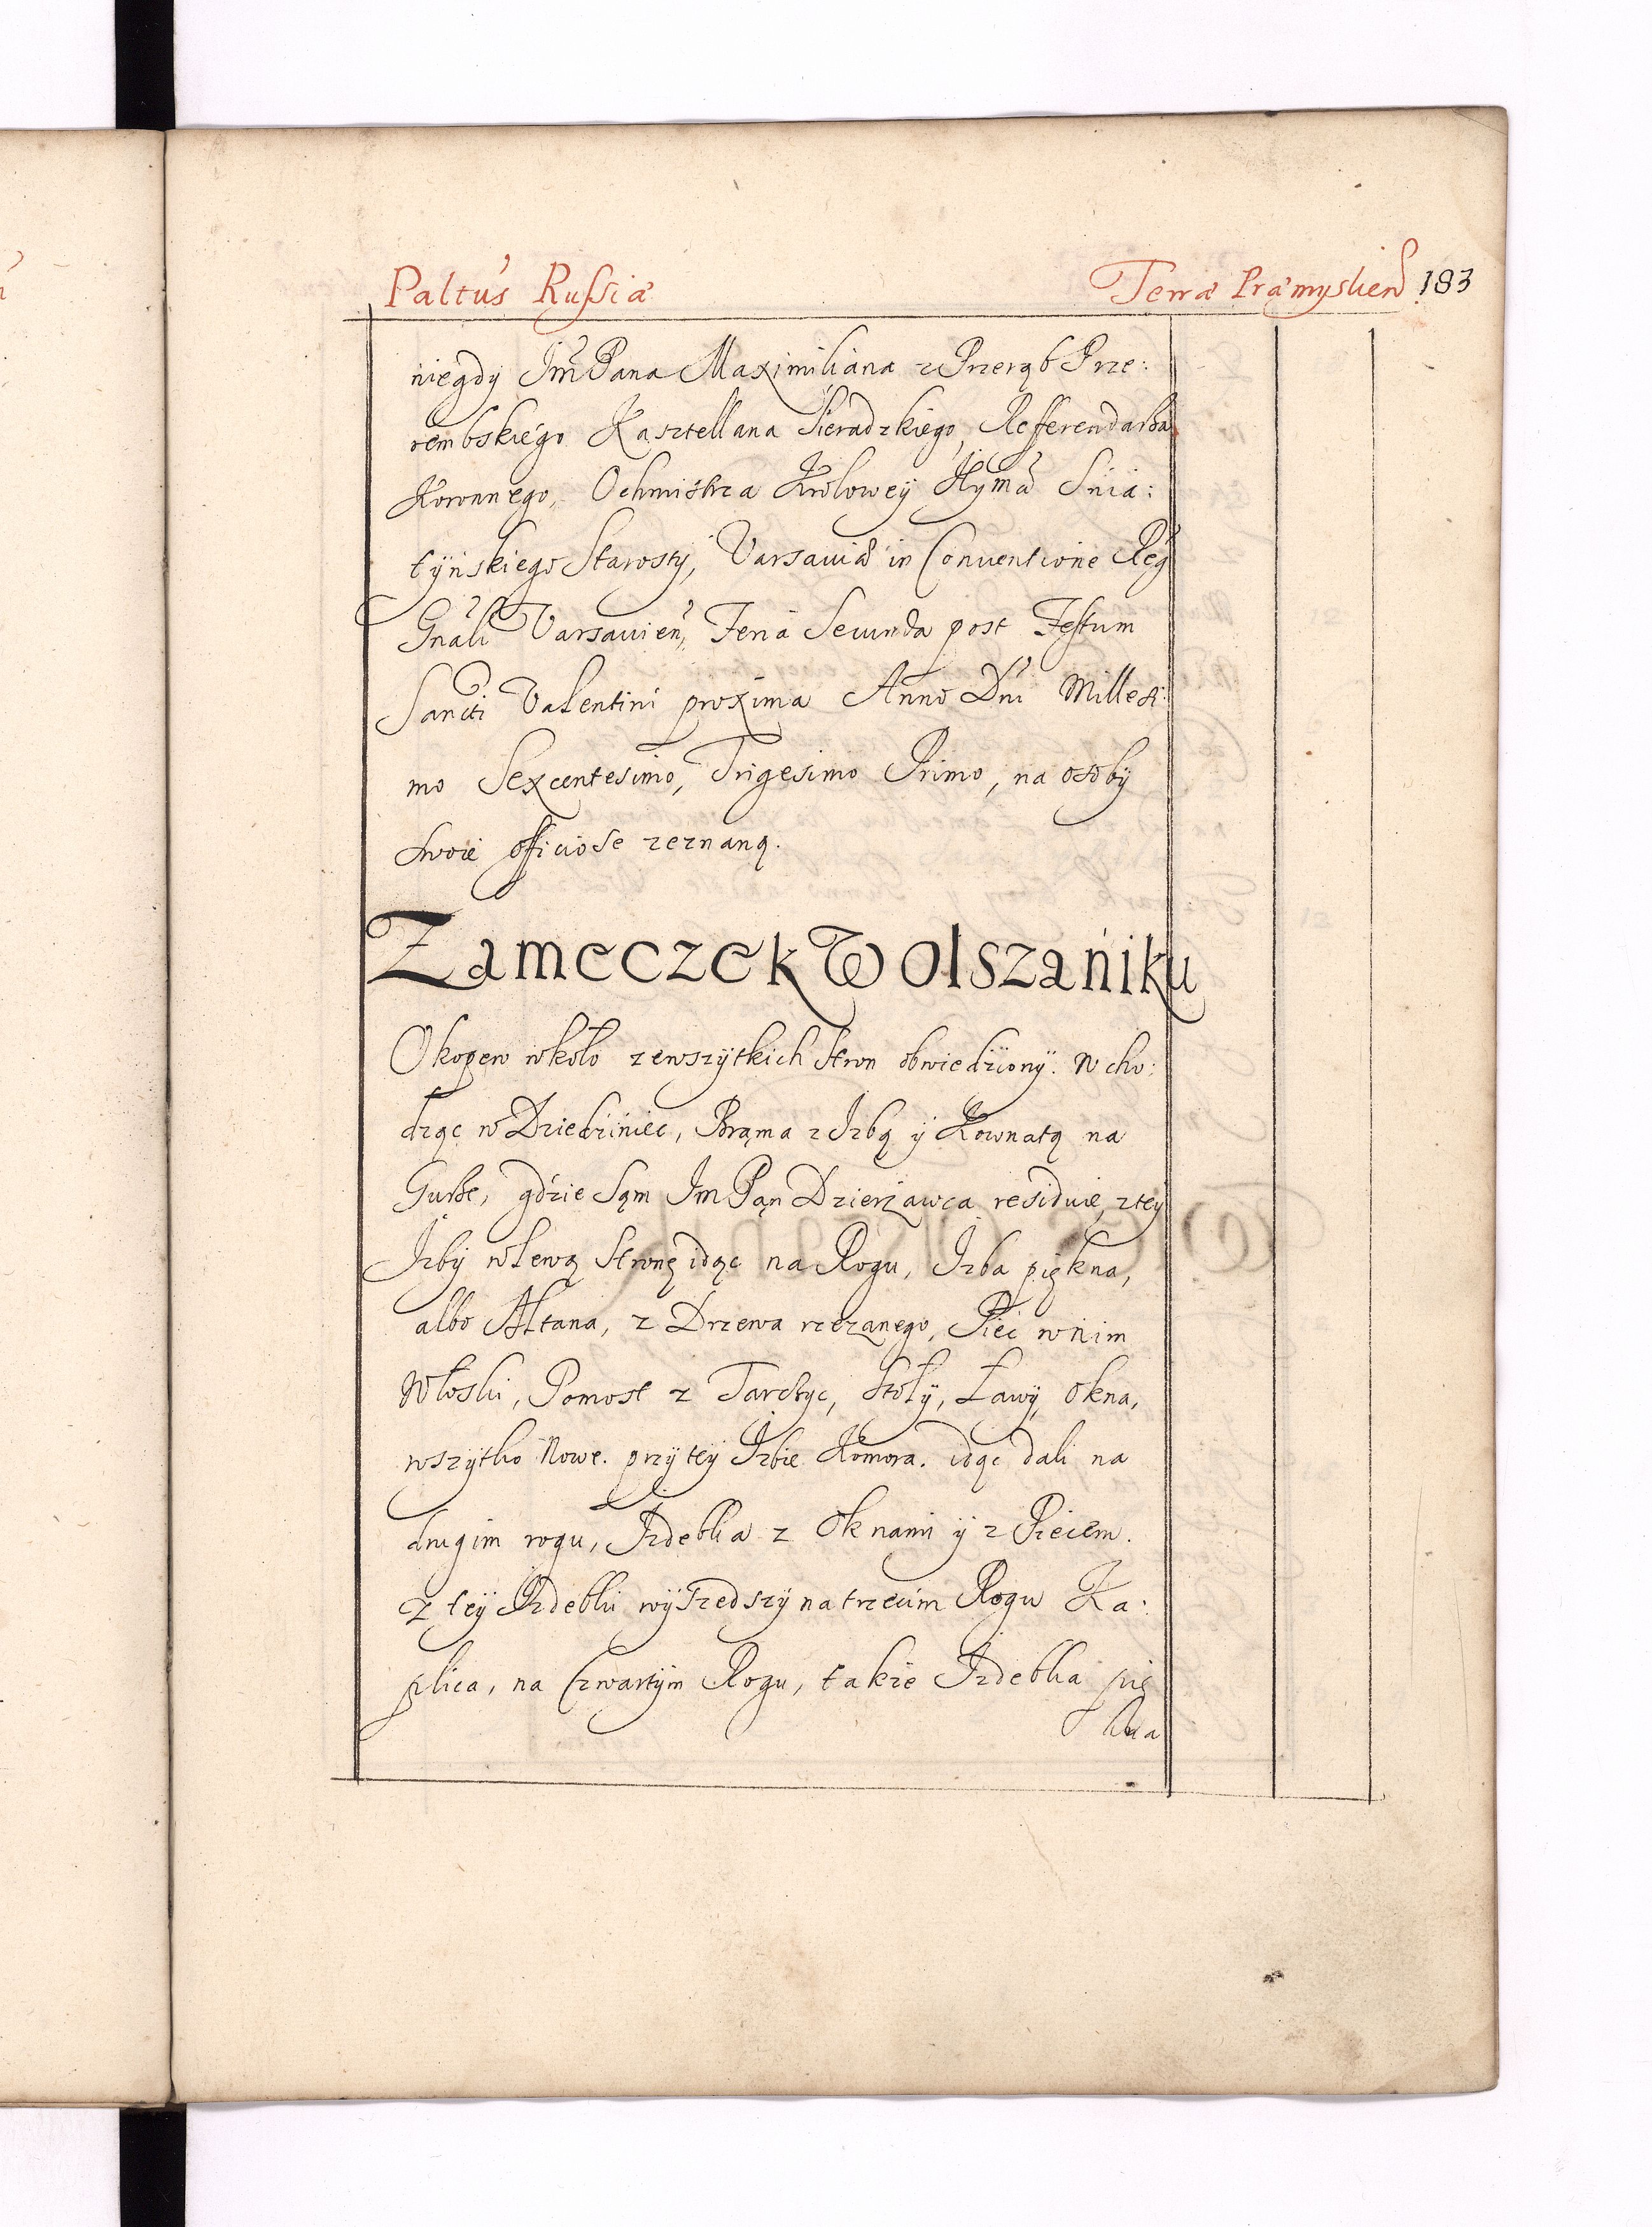 Paltus Russiæ Terræ Præmyslien 183
niegdy Jm̃ Pana Maximiliana z Przerąb Prze:
rembskiego Kasztellana Sieradzkiego, Refferendarßa
Koronnego, Ochmistrza Krolowey Jeym̃ Snia:
tyńskiego Starosty, Varsaviæ in Conventione Reg
Gnali Varsavien, Feria Secunda post Festum
Sancti Valentini proxima Anno Dni Millesi:
mo Sexcentesimo, Trigesimo Primo, na osoby
swoie officiose zeznaną.
Zameczek W Olszaniku
Okopem wkoło zewszytkich Stron obwiedziony. Wcho:
dząc w Dziedziniec, Brąma z Izbą y Kownatą na
Gurße, gdzie Sąm Jm Pąn Dzierżawca residuie, ztey
Izby w Lewą Stronę idąc na Rogu, Izba piękna,
albo Altana, z Drzewa rzezanego, Piec w nim
Włoski, Pomost z Tarcbyc, Stoły, Ławy, Okna,
wszytko Nowe. przy tey Izbie Komora. idąc dali na
drugim rogu, Izdebka z Oknami y z Piecem.
z tey Izdebki wyszedszy na trzecim Rogu Ka:
plica, na Czwartym Rogu, takze Izdebka pię
kna